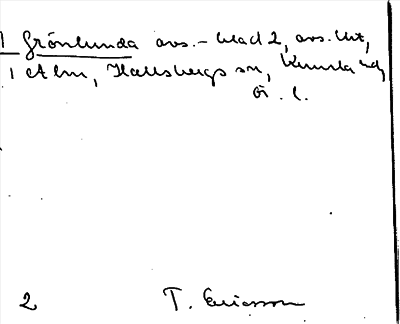 1 Grönlunda avs. – blad 2, avs. litt,
1 Alm, Hallsbergs sn, Kumla hd,
Ö. l.
2 T. Ericsson